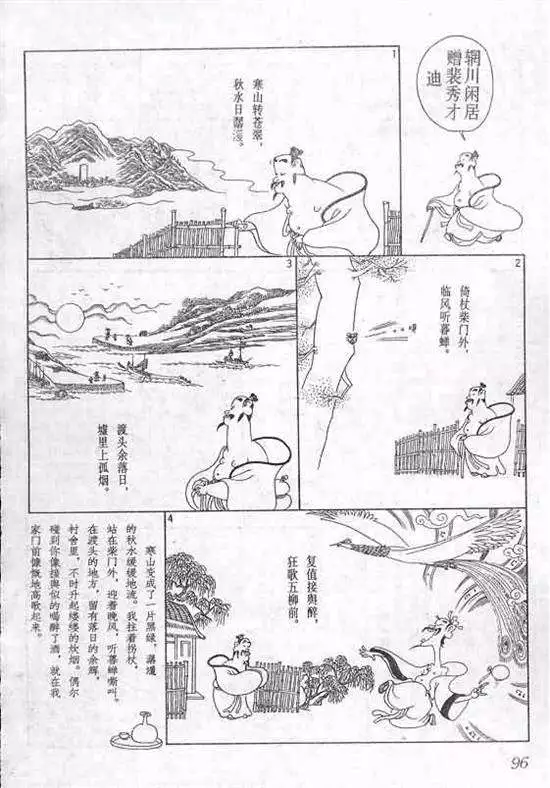 辋川闲居
赠裴秀才
迪
1
寒山转苍翠，
秋水日潺湲。
2
倚杖柴门外，
临风听暮蝉。
3
渡头余落日，
墟里上孤烟。
4
复值接舆醉，
狂歌五柳前。
寒山变成了一片黑绿，潺湲
的秋水缓缓地流。我拄着拐杖，
站在柴门外，迎着晚风，听暮蝉嘶叫。
在渡头的地方，留有落日的余辉，
村舍里，不时升起缕缕的炊烟。偶尔
碰到你像接舆似的喝醉了酒，就在我
家门前慷慨地高歌起来。
96